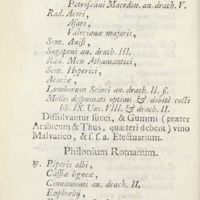 Petroselini Macedon. an. drach. V.
Rad. Acori,
Asari,
Valerianæ majoris,
Sem. Anisi,
Sagapeni an. drach. III.
Rad. Meu Athamantici,
Sem. Hyperici,
Acaciæ,
Lumborum Scinci an. drach. II. ß.
Mellis despumati optimi & debitè cocti
lib. IX. Unc. VIII. & drach. II.
Dissolvantur succi, & Gummi (præter
Arabicum & Thus, quæ teri debent) vino
Malvatico, & f. s. a. Electuarium.
Philonium Romanum.
℞. Piperis albi,
Cassiæ ligneæ,
Cinnamomi an. drach. II.
Euphorbij,